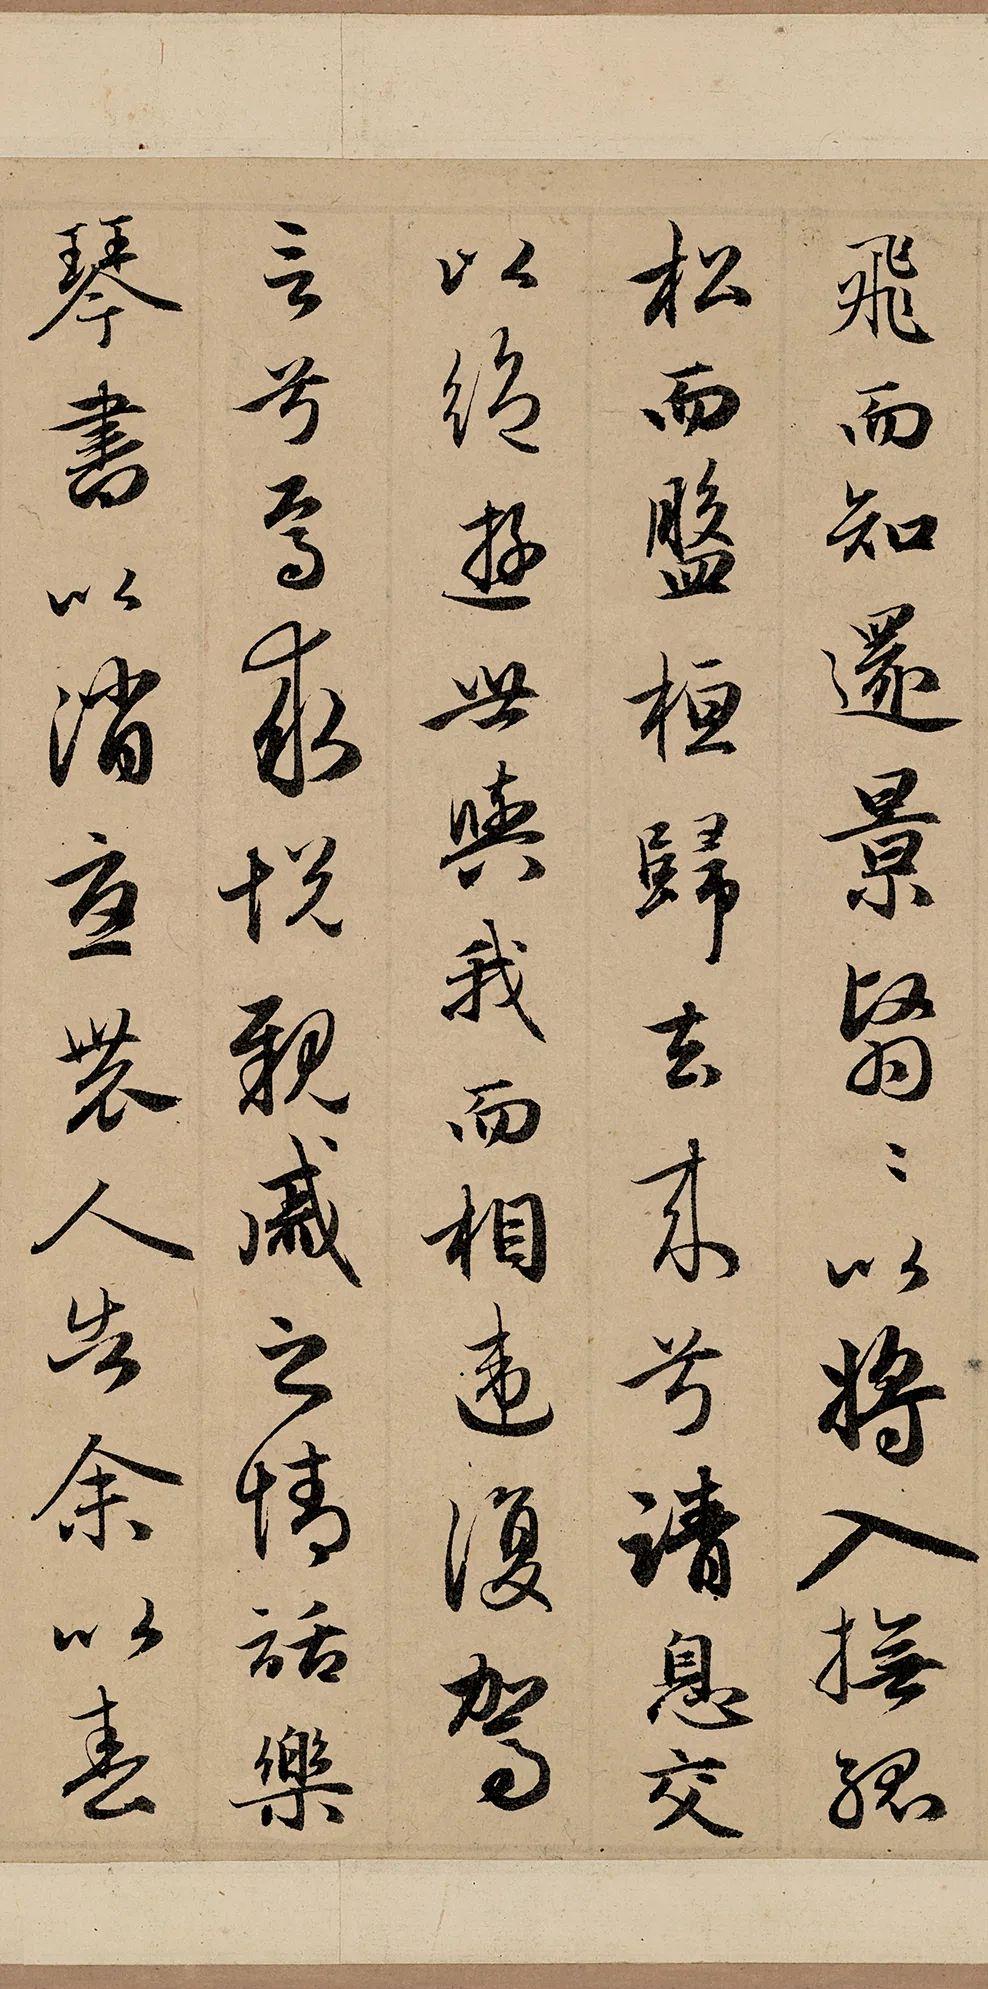 飛而知還景翳〻以將入撫孤
松而盤桓歸去來兮請息交
以絕遊世與我而相違復駕
言兮焉求悅親戚之情話樂
琴書以消憂農人告余以春